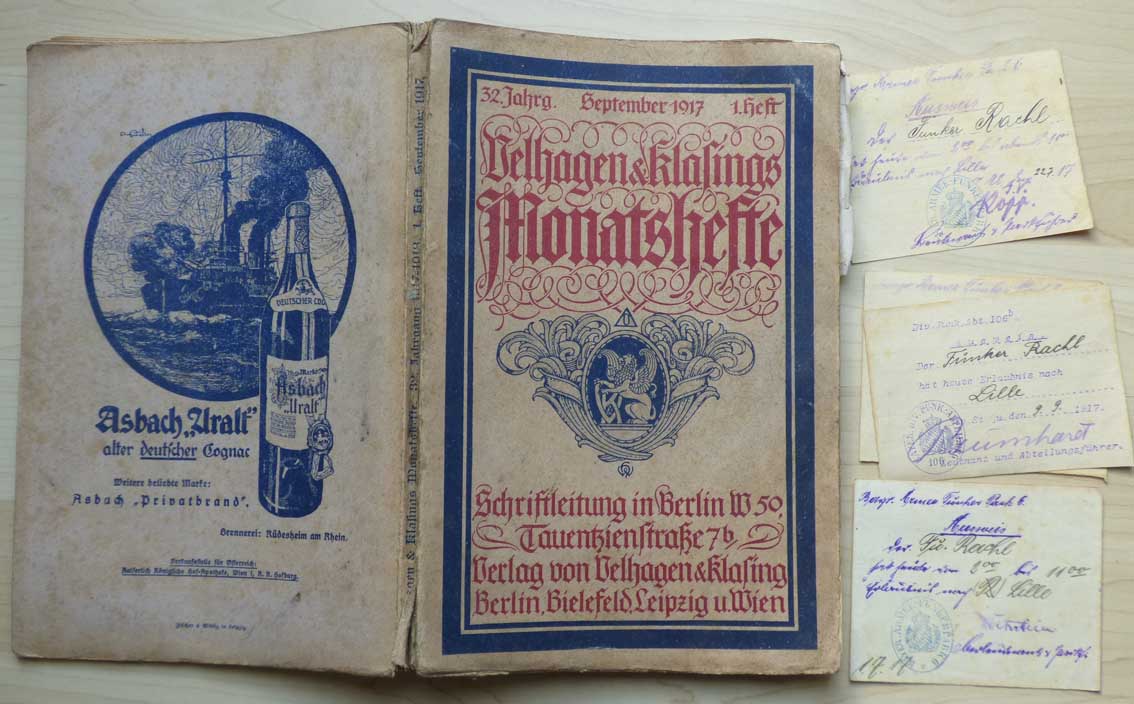 Asbach „Uralt"
alter deutscher Cognac
Weitere beliebte Marke:
Asbach „Privatbrand".
Brennerei: Rüdesheim am Rhein.
Verkaufsstelle für Österreich:
Kaiserlich Königliche Hof-Apotheke, Wien I, K. K. Hofburg.
DEUTSCHER COG
Asbach
„Uralt"
Klasings Monatshefte. 32. Jahrgang 1917-1918. 1. Heft. September 1917.
32. Jahrg. September 1917 1. Heft
Velhagen & Klasings
Monatshefte
Schriftleitung in Berlin W 50,
Tauentzienstraße 7b
Verlag von Velhagen & Klasing
Berlin, Bielefeld, Leipzig u. Wien
Ausweis
Der Funker Rachl
hat heute von bis
Erlaubnis nach Lille
22.7.17
I.V.
Kopp.
Div. Funk. Abt. 106b
Ausweis
Der Funker Rachl
hat heute Erlaubnis nach
Lille
den 9.9. 1917.
106
Leutnant und Abteilungsführer.
Bayr. Armee Funker Park 6.
Ausweis
Der Fu. Rachl
hat heute von 8 00 bis 11 00
Erlaubnis nach Lille
17.